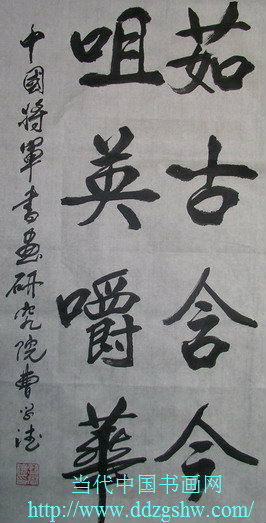 茹古含今
咀英嚼華
中國將軍書畫研究院曹學德
当代中国书画网
http://www.ddzgshw.com/